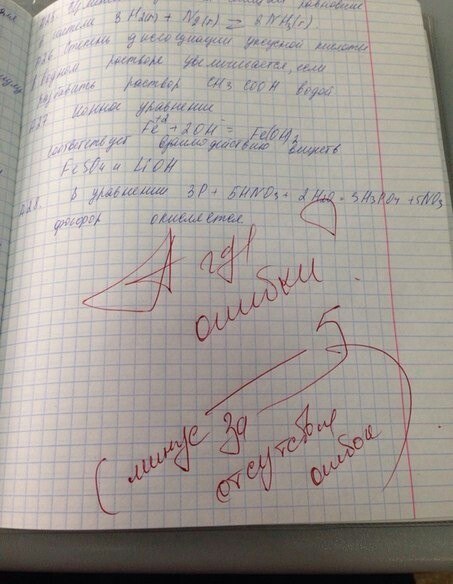 равновесие
в системе 3H₂(г) + N₂(г) ⇄ 2NH₃(г).
А26 Степень диссоциации уксусной кислоты
в водном растворе увеличивается, если
разбавить раствор CH3COOH водой
А27 Ионное уравнение
Fe⁺² + 2OH⁻ = Fe(OH)₂
соответствует взаимодействию веществ
FeSO₄ и LiOH
А28. В уравнении 3P + 5HNO₃ + 2H₂O = 3H₃PO₄ + 5NO
фосфор окисляется.
А где
ошибки
5
(минус за
отсутствие
ошибок)